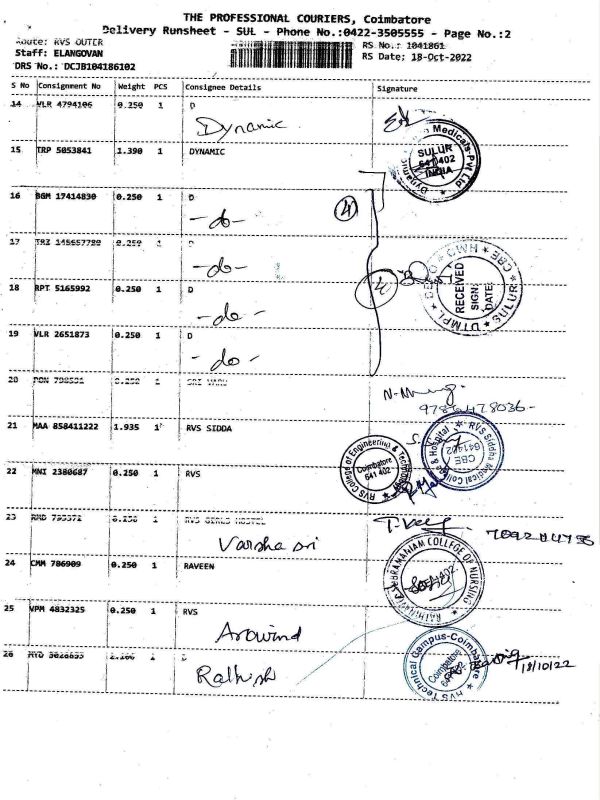 THE PROFESSIONAL COURIERS, Coimbatore
Delivery Runsheet - SUL - Phone No.:0422-3505555 - Page No.:2
Route: RVS OUTER
RS No.: 1041861
Staff: ELANGOVAN
RS Date: 18-Oct-2022
DRS No.: DCJB104186102
S No Consignment No Weight PCS Consignee Details Signature
14 VLR 4794106 0.250 1 D
Dynamic
Medicals Pvt Ltd
SULUR
641402
INDIA
15 TRP 5053841 1.390 1 DYNAMIC
16 BGM 17414830 0.250 1 D
-do-
4
17 0.250 1
-do-
4
RECEIVED
SIGN:
DATE:
SULUR
CBE
18 RPT 5165992 0.250 1 D
-do-
19 VLR 2651873 0.250 1 D
-do-
20 0.250
21 MAA 858411222 1.935 1 RVS SIDDA
RVS Siddha Medical College & Hospital
CBE
641402
RVS College of Engineering &
Coimbatore
641 402
22 MNI 2380687 0.250 1 RVS
23 RVS GIRLS HOSTEL
Varsha sri
24 CMM 786909 0.250 1 RAVEEN
COLLEGE OF NURSING
25 VPM 4832325 0.250 1 RVS
Arowind
26
Ralhish
RVS Technical Campus-Coimbatore
Coimbatore
18/10/22